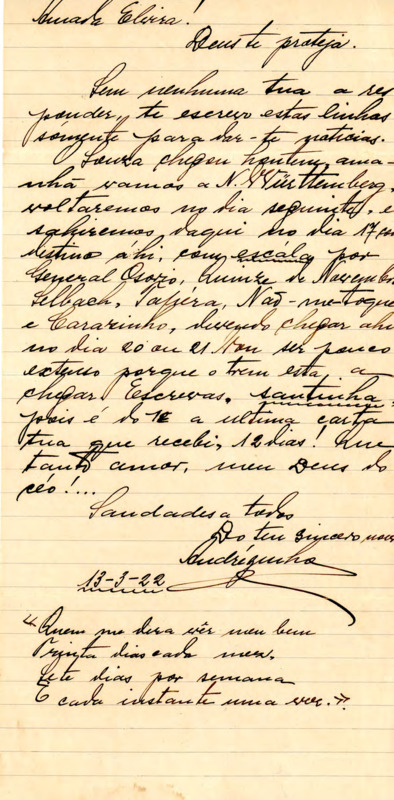 Amada Elvira!
Deus te proteja.
Sem nenhuma tua a res
ponder, te escrevo estas linhas
sómente para dar-te noticias.
Souza chegou hontem, ama-
nhã vamos a N. Württemberg,
voltaremos no dia seguinte, e
sahiremos daqui no dia 17 com
destino áhi, com escála por
General Osorio, Quinze de Novembro
Selbach, Tapéra, Não-me-toque
e Carazinho, devendo chegar ahi
no dia 20 ou 21. Vou ser pouco
extenso porque o trem está a
chegar. Escrevas, santinha,
pois é do 1º a ultima carta
tua que recebi, 12 dias! Que
tanto amor, meu Deus do
céo!...
Saudades a todos
Do teu sincero noivo
Andrézinho
13-3-22
"Quem me dera vêr meu bem
Trinta dias cada mez,
Sete dias por semana
E cada instante uma vez.".